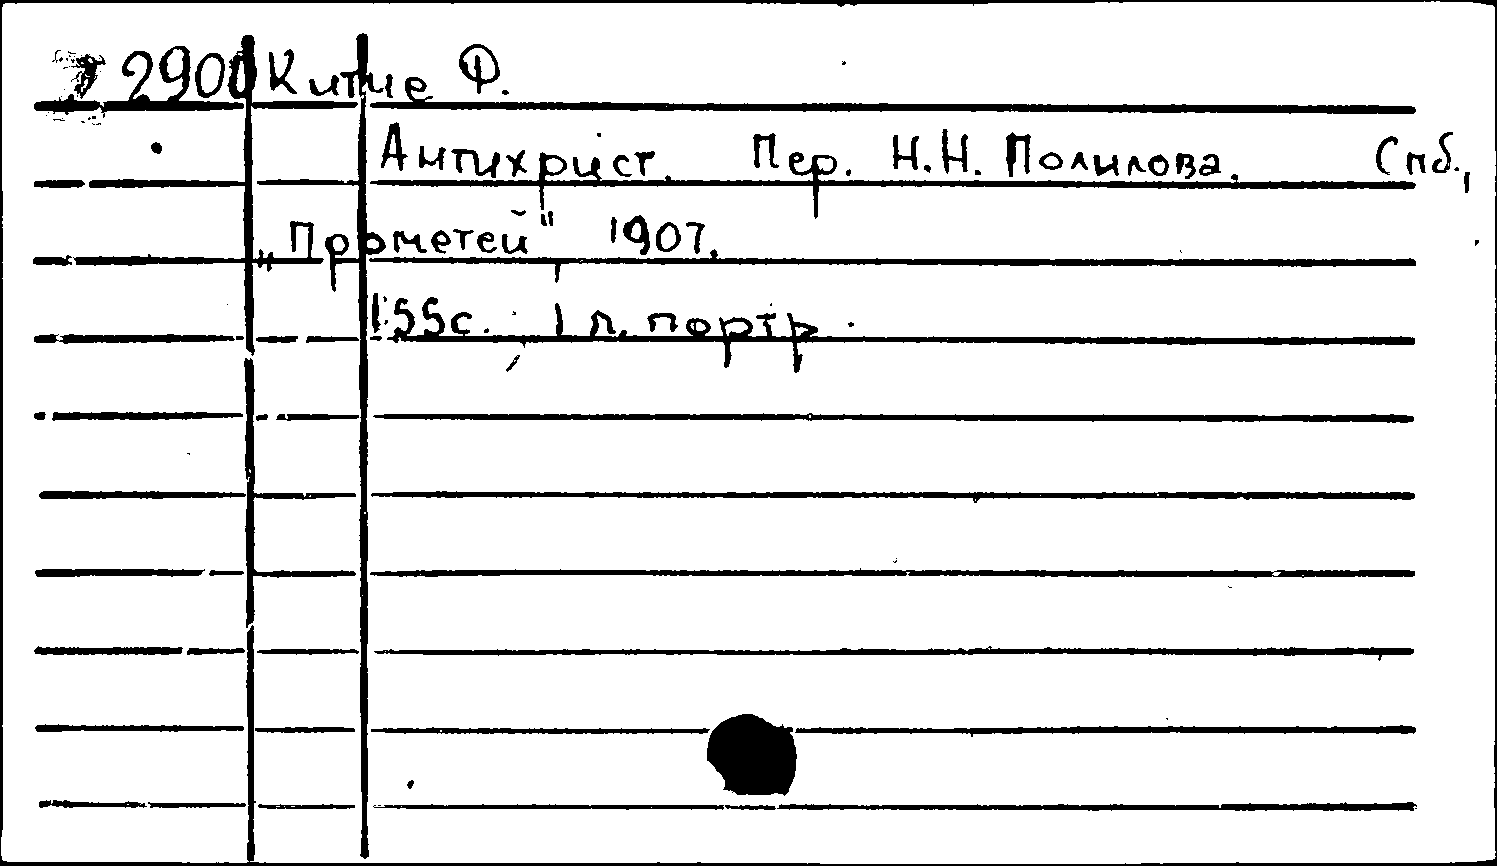 2900 Китце Ф.
Антихрист. Пер. Н.Н. Полилова. Спб.,
„Прометей", 1907.
155с., 1 л. портр.